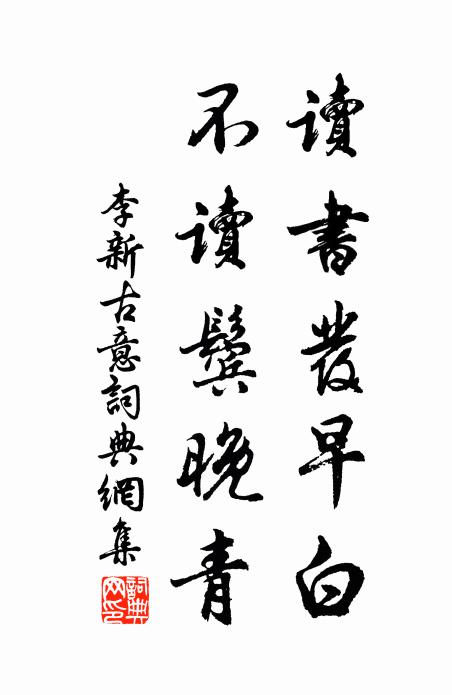 讀書發早白
不讀鬢晚青
李新古意詞典網集
詞典
网印